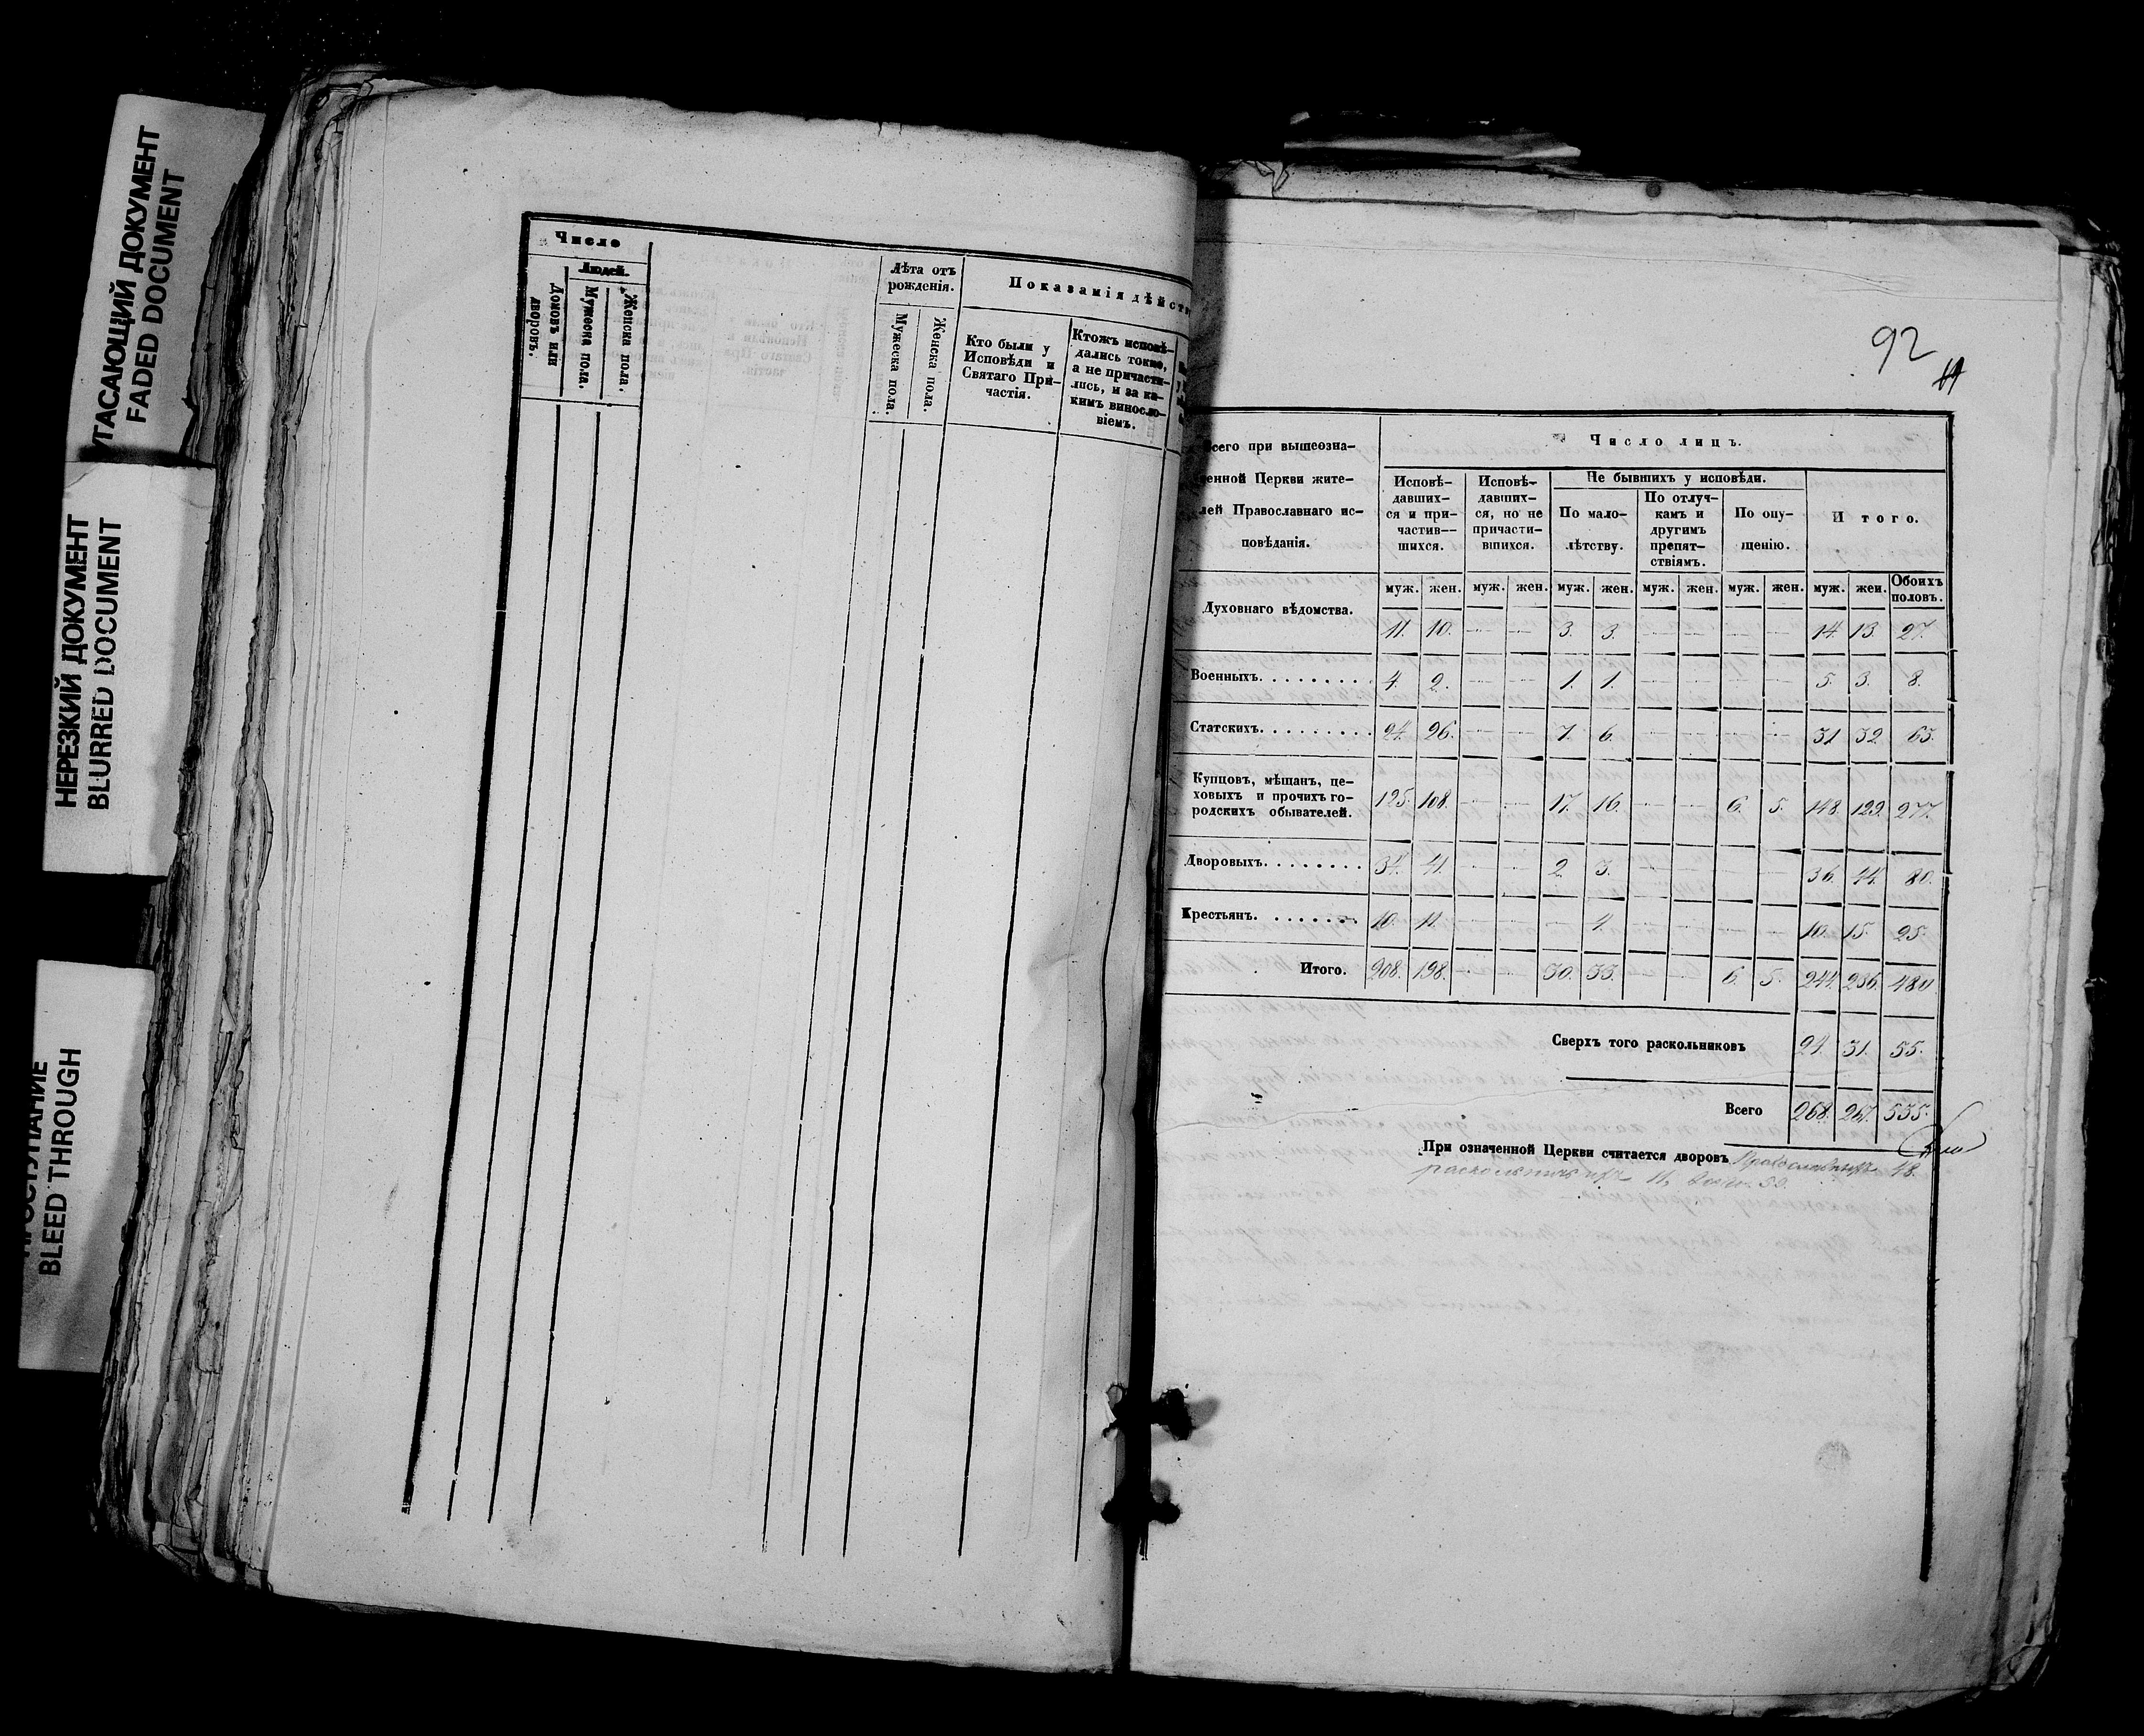 УГАСАЮЩИЙ ДОКУМЕНТ
FADED DOCUMENT
НЕРЕЗКИЙ ДОКУМЕНТ
BLURRED DOCUMENT
BLEED THROUGH
Число
Людей.
Домовъ или дворовъ.
Мужеска пола.
Женска пола.
Лѣта отъ
рожденія.
Мужеска пола.
Женска пола.
Показанія дѣйств
Кто были у
Исповѣди и
Святаго При-
частія.
Ктожъ исповѣ-
дались токмо,
а не причасти-
лись, и за ка-
кимъ виносло-
віемъ.
92
11
сего при вышеозна-
енной Церкви жите-
лей Православнаго ис-
повѣданія.
Число лицъ.
Исповѣ-
давших-
ся и при-
частив--
шихся.
Исповѣ-
давших-
ся, но не
причасти-
вшихся.
Не бывшихъ у исповѣди.
По мало-
лѣтству.
По отлуч-
камъ и
другимъ
препят-
ствіямъ.
По опу-
щенію.
Итого.
муж. жен. муж. жен. муж. жен. муж. жен. муж. жен. муж. жен. Обоихъ половъ.
Духовнаго вѣдомства. 11. 10. — — 3. 3. — — — — 14. 13. 27.
Военныхъ. . . . . . . . . 4. 2. — — 1. 1. — — — — 5. 3. 8.
Статскихъ. . . . . . . . . 24. 26. — — 7. 6. — — — — 31 32 63.
Купцовъ, мѣщанъ, це-
ховыхъ и прочихъ го-
родскихъ обывателей. 125. 108. — — 17. 16. — — 6. 5. 148. 129. 277.
Дворовыхъ. . . . . . . . 34. 41. — — 2. 3. — — — — 36. 44. 80.
Крестьянъ. . . . . . . . 10. 11. — — — 4. — — — — 10. 15. 25.
Итого. 208. 198. — — 30. 33. — — 6. 5. 244. 236. 480
Сверхъ того раскольниковъ 24. 31. 55.
Всего 268. 267. 535.
При означенной Церкви считается дворовъ Православныхъ 48.
раскольническихъ 11,